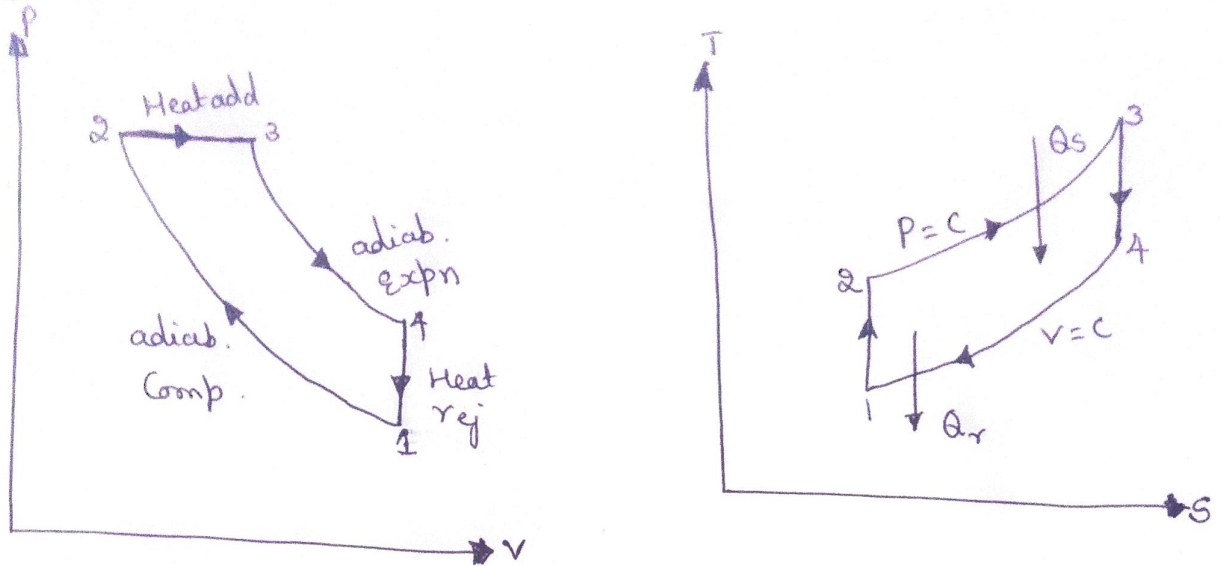 P
Heat add
2
3
adiab.
expn
adiab.
Comp.
4
Heat
rej
1
V
T
3
Qs
P = C
4
2
V = C
1
Qr
S